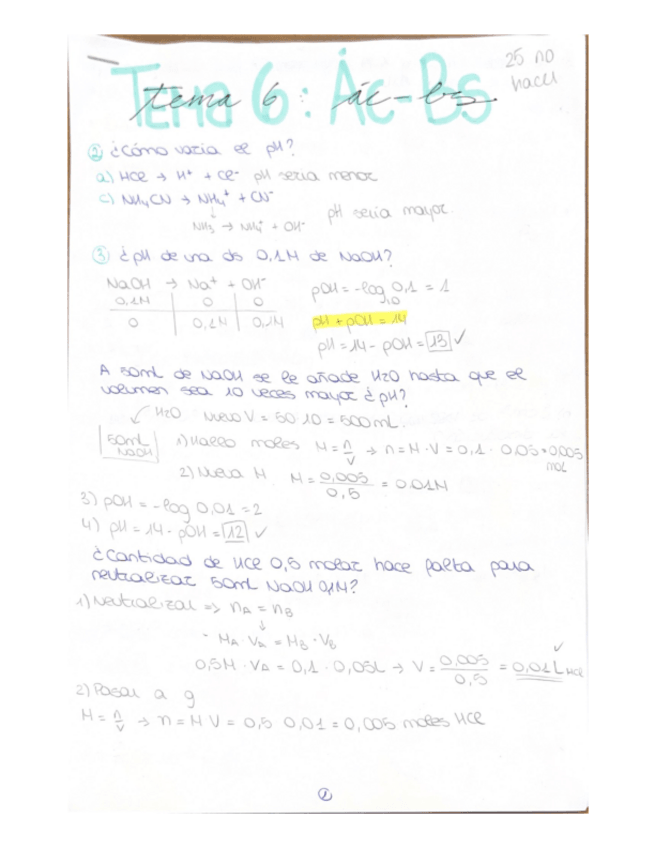 25 no
hacer
Tema 6: Ác-Bs
tema 6: ác-bs.
② ¿Cómo varía el pH?
a) HCl → H⁺ + Cl⁻ pH sería menor
c) NH₄CN → NH₄⁺ + CN⁻
↓
NH₃ → NH₄⁺ + OH⁻
pH sería mayor.
③ ¿pH de una ds 0,1M de NaOH?
NaOH → Na⁺ + OH⁻
0,1M 0 0
0 0,1M 0,1M
pOH = -log 0,1 = 1
pH + pOH = 14
pH = 14 - pOH = 13 ✓
A 50mL de NaOH se le añade H2O hasta que el
volumen sea 10 veces mayor ¿pH?
H2O Nuevo V = 50·10 = 500mL.
50mL
NaOH
1) Hallo moles M = n/V → n = M·V = 0,1 · 0,05 = 0,005
mol
2) Nueva M M = 0,005/0,5 = 0,01M
3) pOH = -log 0,01 = 2
4) pH = 14 - pOH = 12 ✓
¿Cantidad de HCl 0,5 molar hace falta para
neutralizar 50mL NaOH 0,1M?
1) Neutralizar ⇒ nA = nB
↓
- MA·VA = MB·VB
0,5M · VA = 0,1 · 0,05L → V = 0,005/0,5 = 0,01L HCl ✓
2) Pasar a g
M = n/V → n = M V = 0,5 0,01 = 0,005 moles HCl
①